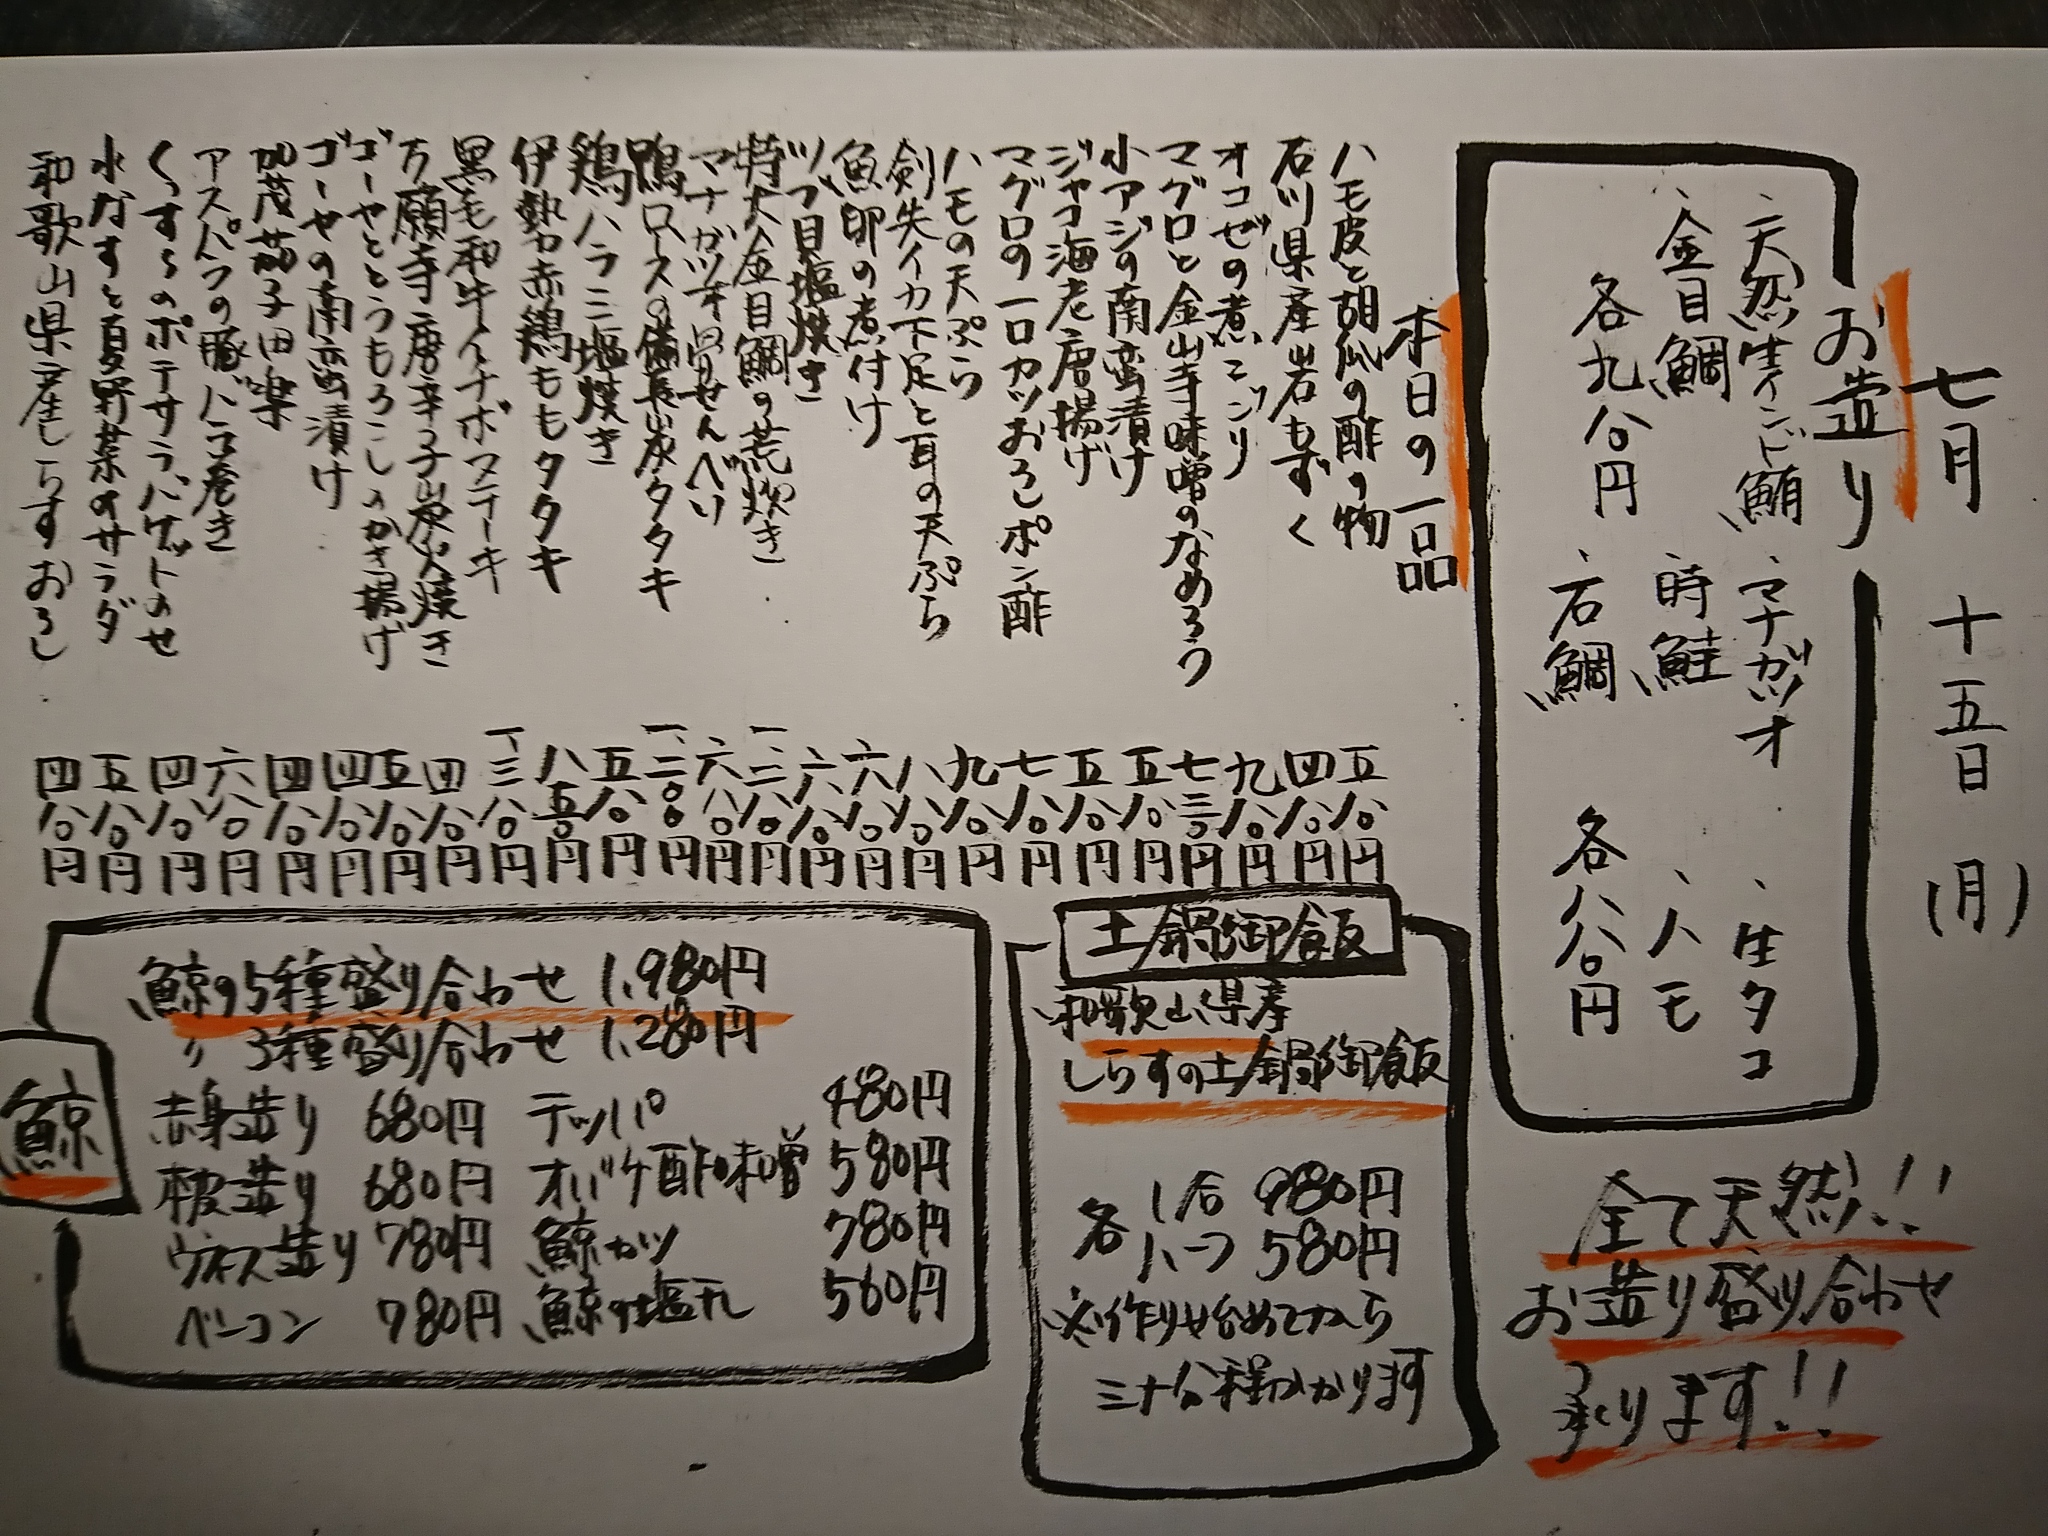 七月 十五日 (月)
お造り
、天然生インド鮪 、マナガツオ 、生タコ
、金目鯛 、時鮭 、ハモ
各九八〇円
、石鯛 各八八〇円
全て天然!!
お造り盛り合わせ
承ります!!
本日の一品
ハモ皮と胡瓜の酢の物 五八〇円
石川県産岩もずく 四八〇円
オコゼの煮こごり 九八〇円
マグロと金山寺味噌のなめろう 七三〇円
小アジの南蛮漬け 五八〇円
ジャコ海老唐揚げ 五八〇円
マグロの一口カツおろしポン酢 七八〇円
ハモの天ぷら 九八〇円
剣先イカ下足と耳の天ぷら 八八〇円
魚卵の煮付け 六八〇円
ツブ貝塩焼き 六八〇円
特大金目鯛の荒炊き 一、二八〇円
マナガツオ骨せんべい 六八〇円
鴨ロースの備長炭タタキ 一、二〇〇円
鶏ハラミ塩焼き 五八〇円
伊勢赤鶏ももタタキ 八五〇円
黒毛和牛イチボステーキ 一、三八〇円
万願寺唐辛子炭火焼き 四八〇円
ゴーヤととうもろこしのかき揚げ 五八〇円
ゴーヤの南蛮漬け 四八〇円
加茂茄子田楽 四八〇円
アスパラの豚バラ巻き 六八〇円
くっすぅのポテサラバゲットのせ 四八〇円
水なすと夏野菜のサラダ 五八〇円
和歌山県産しらすおろし 四八〇円
土鍋御飯
和歌山県産
しらすの土鍋御飯
各 1合 980円
ハーフ 580円
※作り始めてから
三十分程かかります
鯨
鯨の5種盛り合わせ 1,980円
〃 3種盛り合わせ 1,280円
赤身造り 680円 テッパ 480円
本皮造り 680円 オバケ酢味噌 580円
ウネス造り 780円 鯨カツ 780円
ベーコン 780円 鯨の塩丸 560円